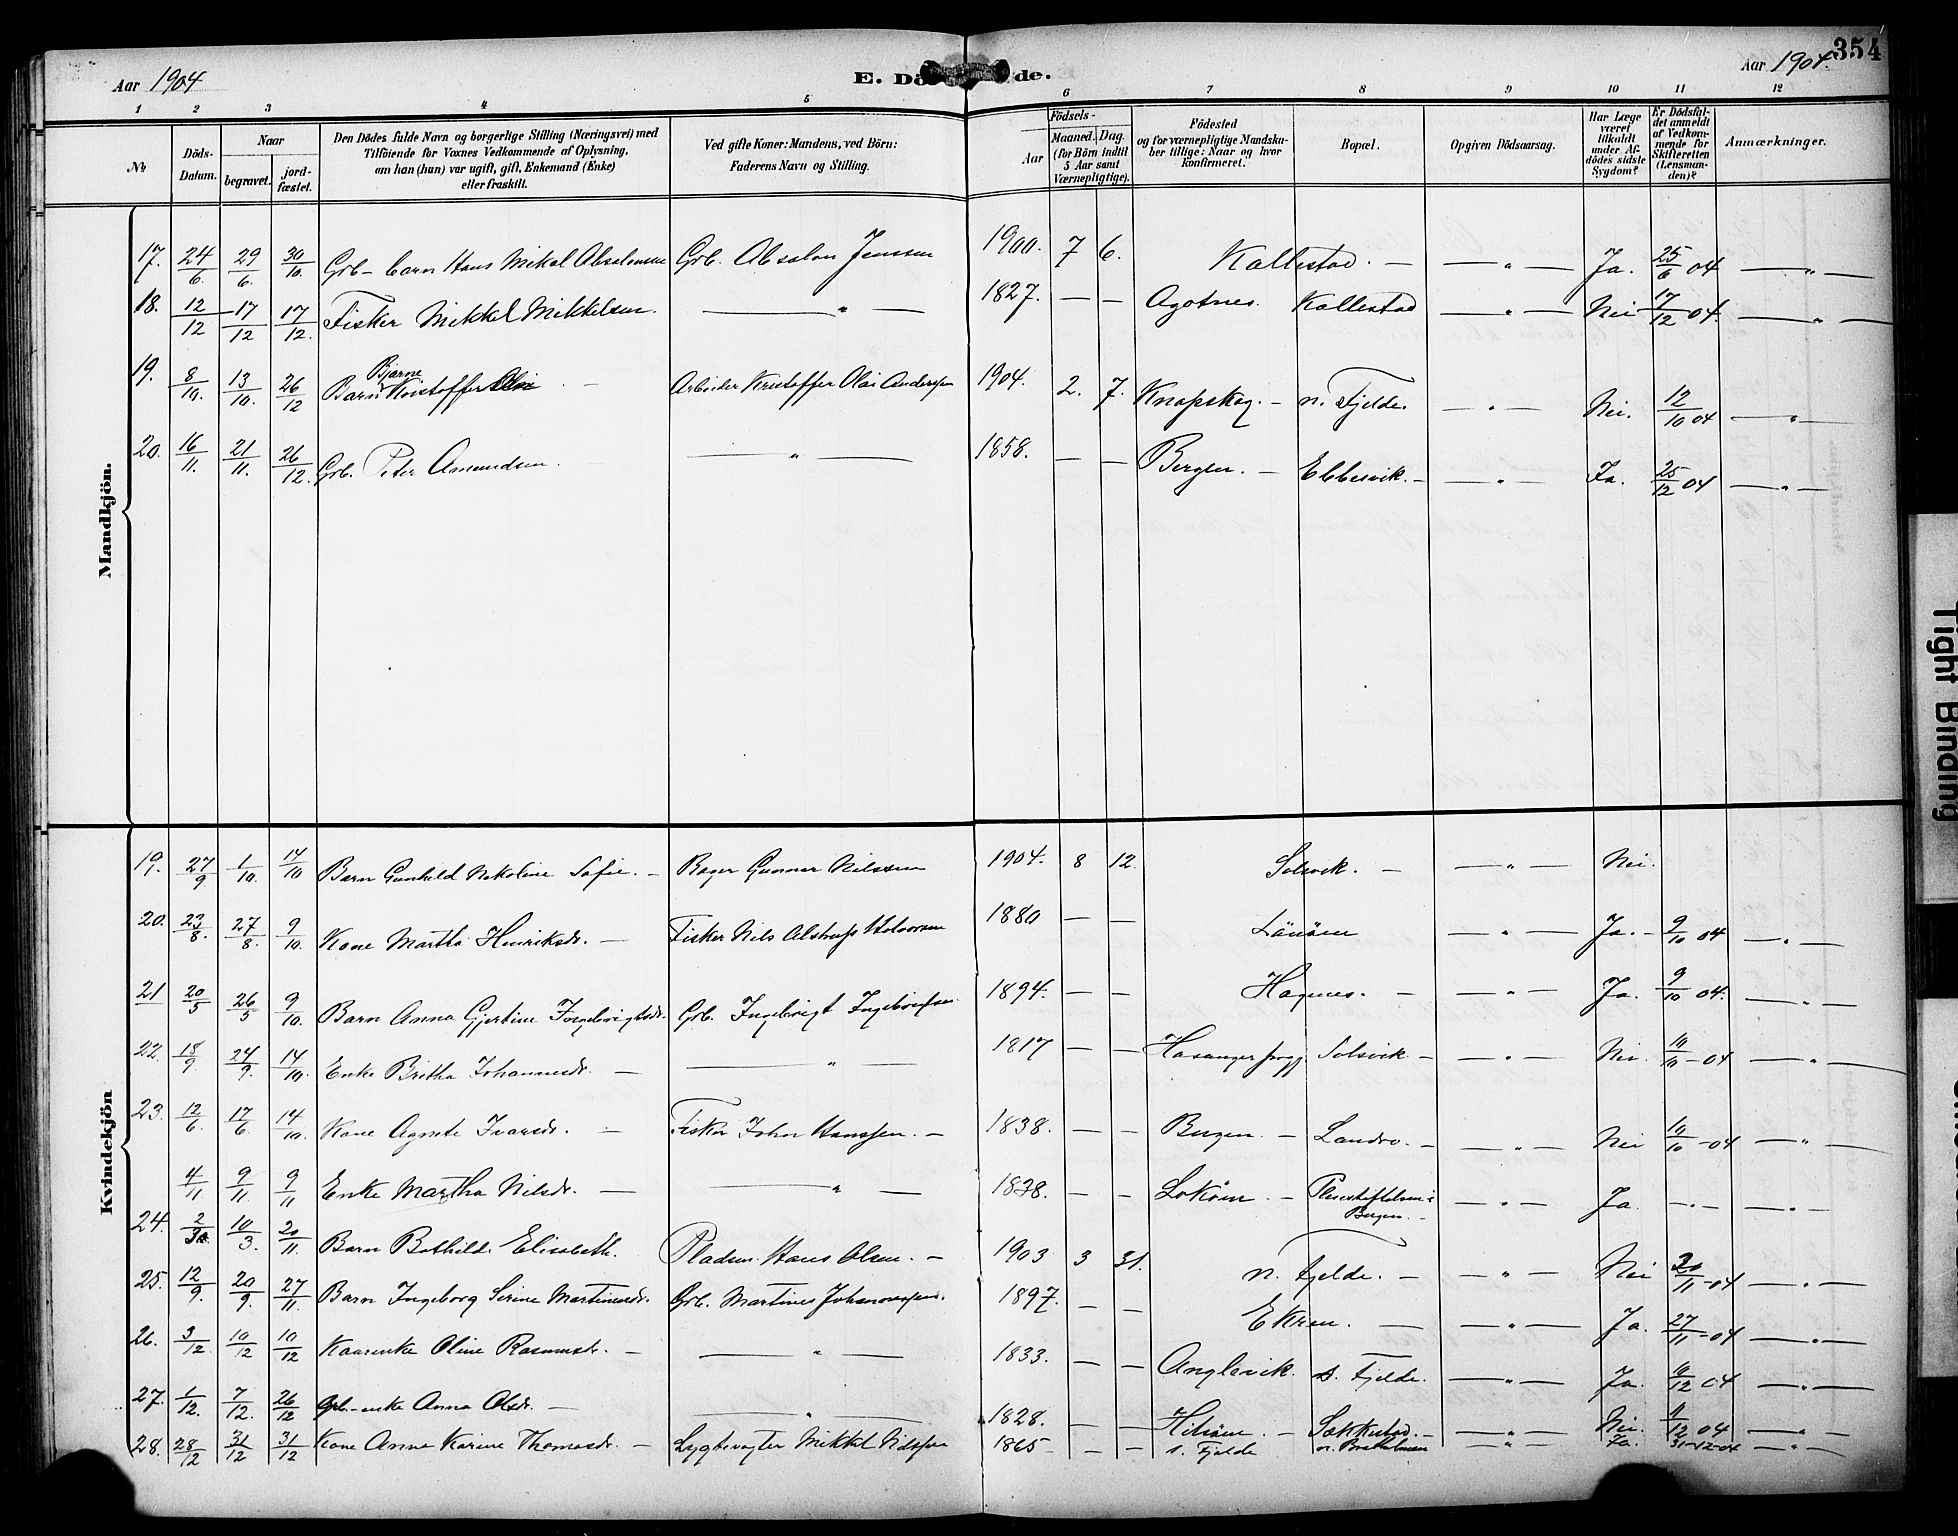 354
Aar 1904 E. Dö de. Aar 1904.
1 2 3 4 5 6 7 8 9 10 11 12
No
Döds-Datum.
Naar
begravet. jordfæstet.
Den Dödes fulde Navn og borgerlige Stilling (Næringsvei) med
Tilföiende for Voxnes Vedkommende af Oplysning,
om han (hun) var ugift, gift, Enkemand (Enke)
eller fraskilt.
Ved gifte Koner: Mandens, ved Börn:
Faderens Navn og Stilling.
Aar
Födsels-
Maaned. Dag.
(for Börn indtil
5 Aar samt
Værnepligtige).
Födested
og for værnepligtige Mandskaber tillige: Naar og hvor
konfirmeret.
Bopæl.
Opgiven Dödsaarsag.
Har Læge
været
tilkaldt
under Afdödes sidste
Sygdom?
Er Dödsfaldet anmeldt
af Vedkommende for
Skifteretten
(Lensmanden)?
Anmærkninger.
Mandkjön.
17. 24/6. 29/6. 30/10. Grb- barn Hans Mikal Absalonsen Grb. Absalon Jenssen 1900. 7 6. Kallestad. — — " — Ja. 25/6 04 — " —
18. 12/12 17/12 17/12. Fisker Mikkel Mikkelsen. — " — 1827. — — Agotnes. Kallestad — " — Nei 17/12 04. — " —
19. 8/10. 13/10. 26/12 Barn Bjarne Kristoffer — Arbeider Kristoffer Olai Anderssen 1904. 2. 7. Knapskog. — n. Fjelde. — " — Nei. 12/10 04 — " —
20. 16/11. 21/11. 26/12. Grb. Peter Amundsen. — " — 1858. — — Bergen. — Ebbesvik. — — " — Ja. 25/12 04 — " —
Kvindekjön
19. 27/9 1/10. 14/10 Barn Gunhild Nikoline Sofie. — Bager Gunnar Nilssen 1904. 8 12. Solsvik. — — " — Nei.
20. 23/8. 27/8. 9/10. Kone Martha Henriksdr. — Fisker Nils 1880 — — — " — Ja. — 9/10 04 — " —
21 20/5 26/5 9/10. Barn Anna Gjertine Ingebrigtsdr. Grb. Ingebrigt Ingebrigtsen. 1894. — — Hagenes. — — " — Ja. 9/10 04. — " —
22. 18/9. 24/9. 14/10. Enke Britha Johannesdr. — — " — 1817 — — Solsvik — — " — Nei 10/10 - 04 — " —
23. 12/6. 17/6. 14/10. Kone Agnete Ivarsdr. — Fisker John Hanssen. — 1838. — — Bergen. — Landro. — — " — Nei 10/10 - 04 — " —
4/11 9/11. 9/11 Enke Martha Nilsdr. — — " — 1838. — — Lokøen. — Bergen. — — " — Ja. — " — — " —
24. 2/3 10/3. 20/11. Barn Bothild Elisabeth. Pladsm. Hans Olsen. — 1903 3 31. n. Fjelde. — — " — Nei 20/11 - 04 — " —
25. 12/9. 20/9. 27/11. Barn Ingeborg Serine Martinusdr. Grb. Martines Johannessen. 1897. — — Ekren. — — " — Ja. 27/11 - 04 — " —
26. 3/12. 10/12 10/12 Kaarenke Oline Rasmusdr. — — " — 1833. — — Anglevik. s. Fjelde. — " — Ja. 10/12 04 — " —
27. 1/12. 7/12. 26/12 Grb.-enke Anna Olsdr. — — " — 1828. — — Hitsöen. — Sækkestad. — — " — Nei. 11/12 04 — " —
28. 28/12 31/12 31/12 Kone Anna Karine Thomasdr. — Lygtevogter Mikkel Nilssen 1865 — — s. Fjelde n. Brattholmen — " — Ja. 31-12-04 — " —
Tight Binding